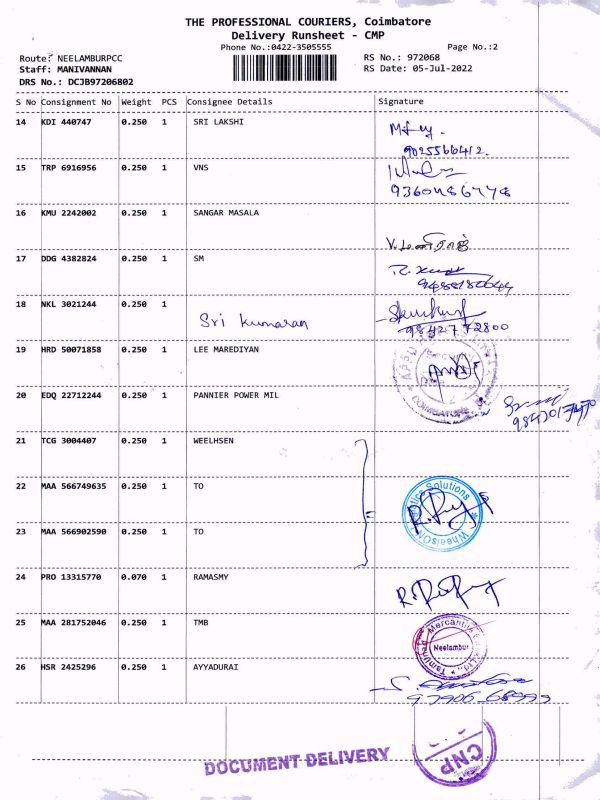 THE PROFESSIONAL COURIERS, Coimbatore
Delivery Runsheet - CMP
Phone No.:0422-3505555
Page No.:2
Route: NEELAMBURPCC
RS No.: 972068
Staff: MANIVANNAN
RS Date: 05-Jul-2022
DRS No.: DCJB97206802
S No Consignment No Weight PCS Consignee Details Signature
14 KDI 440747 0.250 1 SRI LAKSHI
9025566412.
15 TRP 6916956 0.250 1 VNS
16 KMU 2242002 0.250 1 SANGAR MASALA
17 DDG 4382824 0.250 1 SM
18 NKL 3021244 0.250 1 Sri Kumaran
9842772800
19 HRD 50071858 0.250 1 LEE MAREDIYAN
COIMBATORE
20 EDQ 22712244 0.250 1 PANNIER POWER MIL
21 TCG 3004407 0.250 1 WEELHSEN
22 MAA 566749635 0.250 1 TO
WheelsON Solutions
23 MAA 566902590 0.250 1 TO
24 PRO 13315770 0.070 1 RAMASMY
25 MAA 281752046 0.250 1 TMB
Mercantile
Neelambur
26 HSR 2425296 0.250 1 AYYADURAI
DOCUMENT DELIVERY
CNP